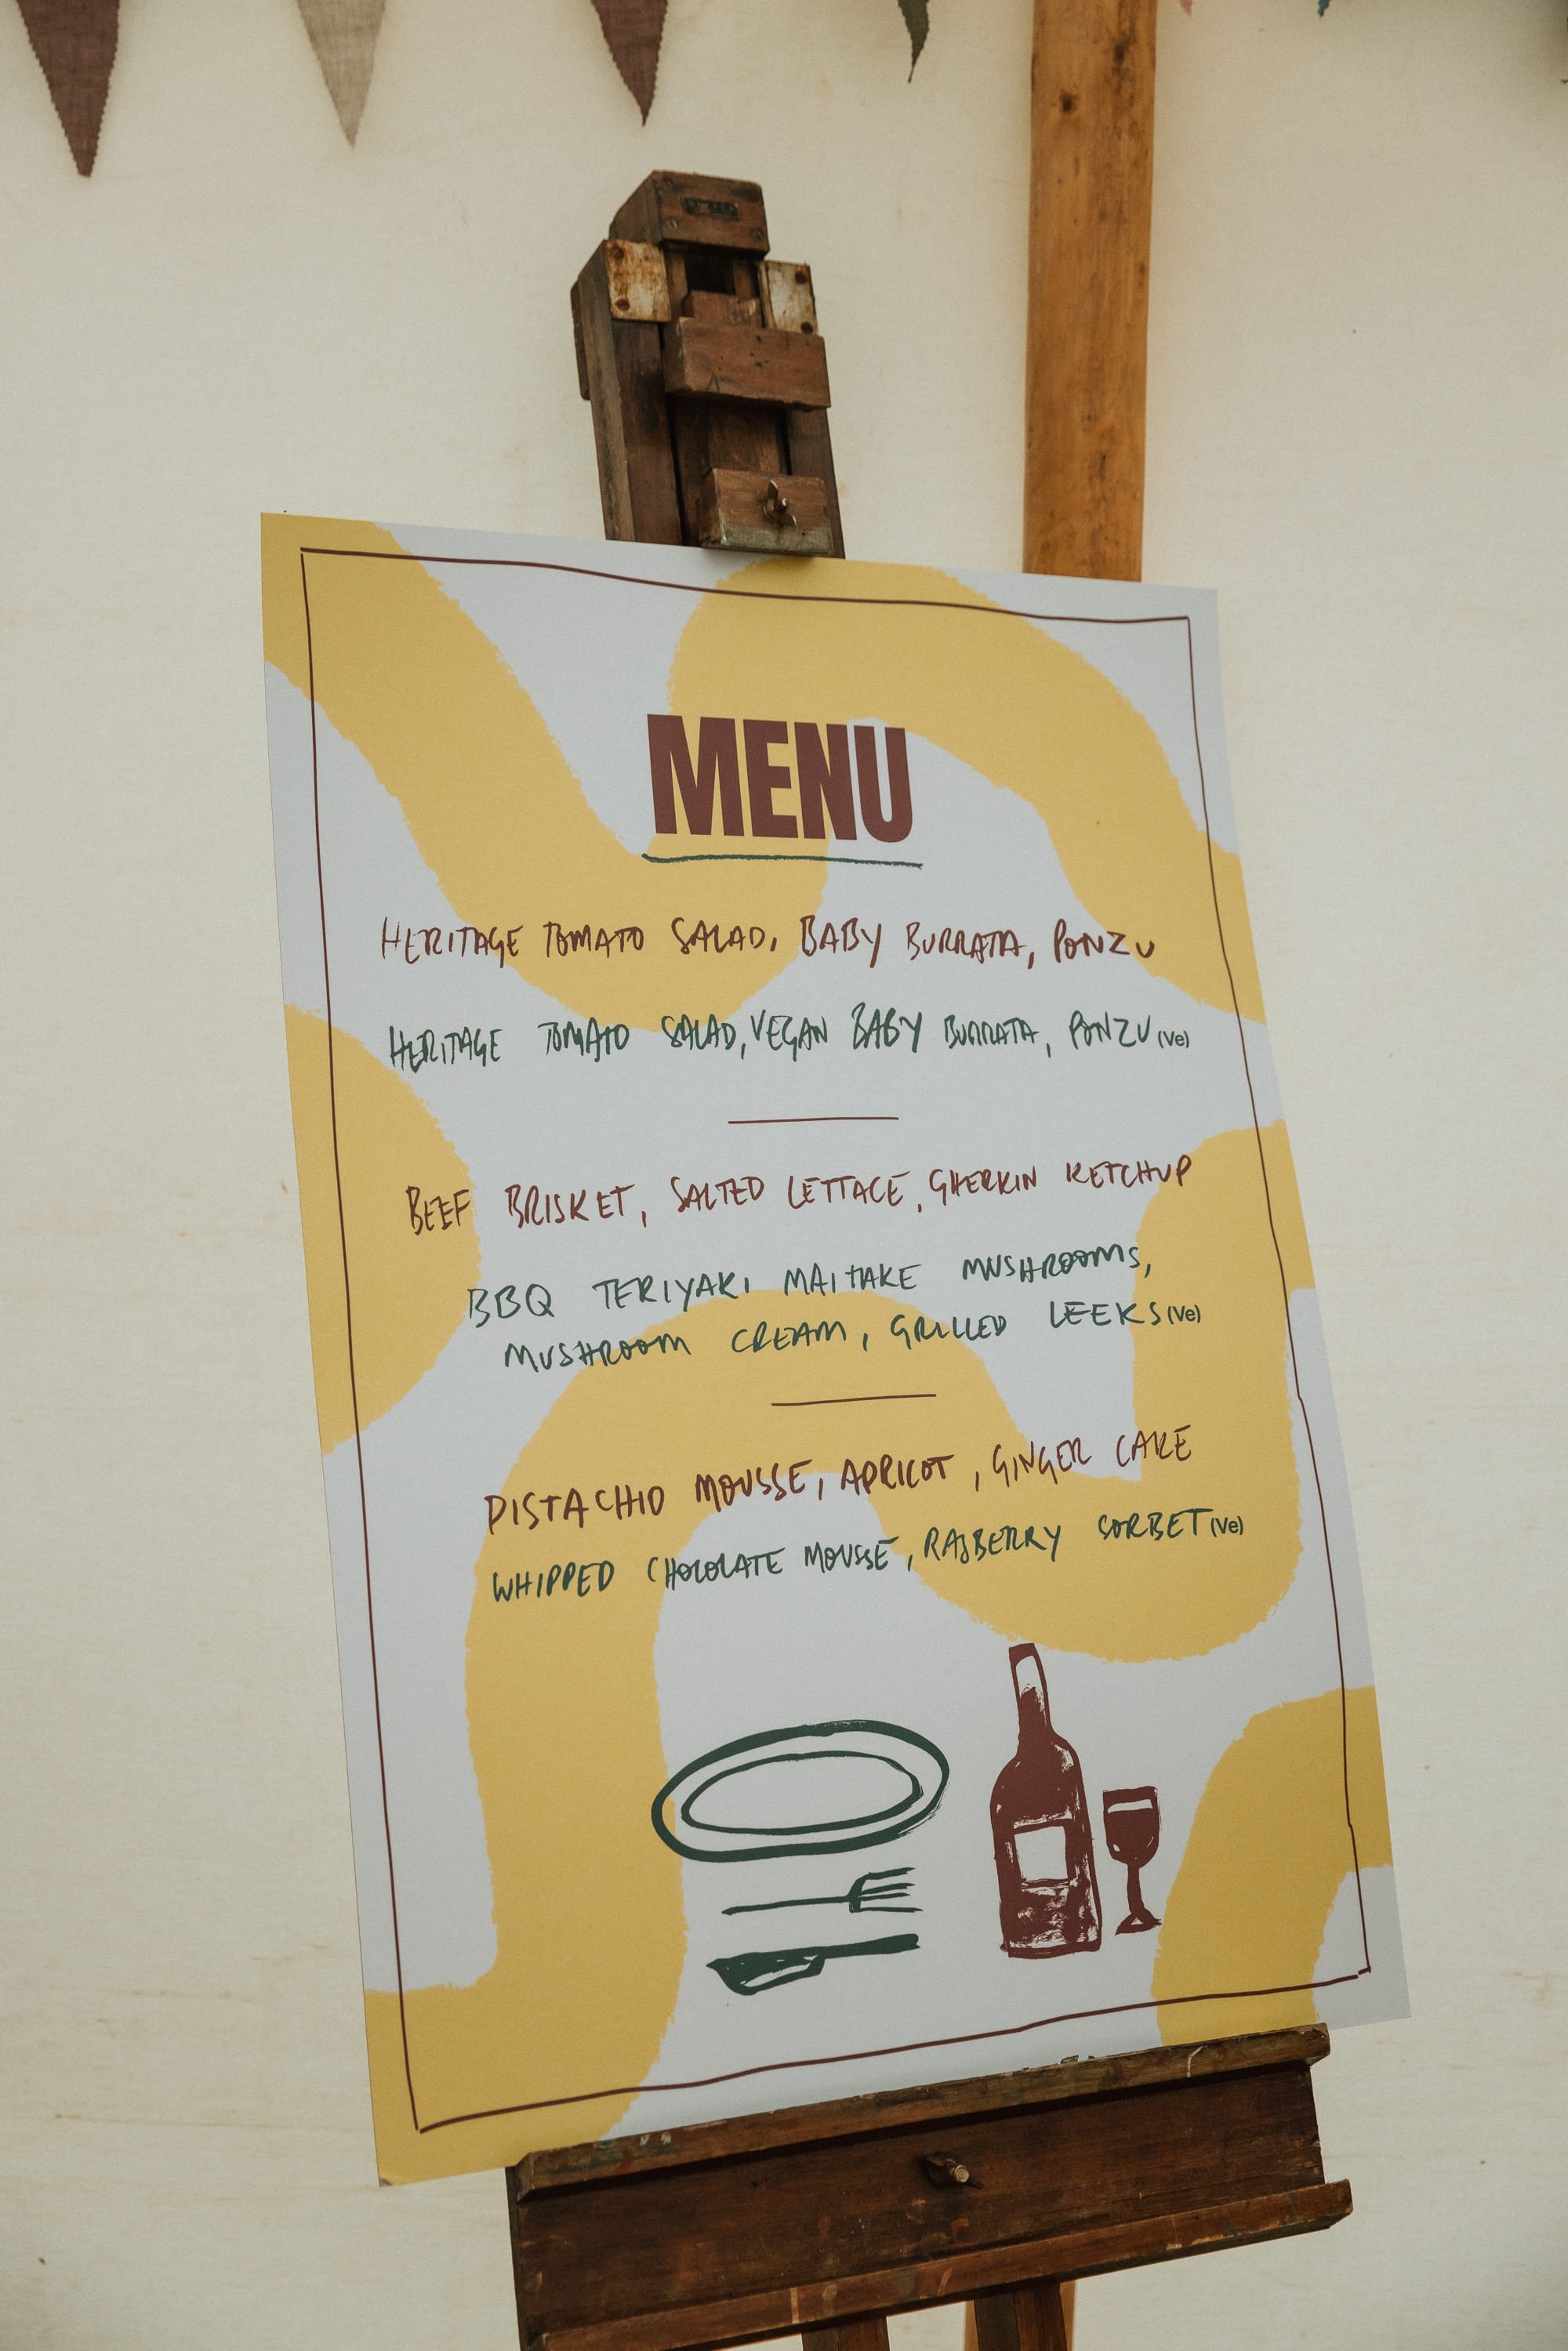 MENU
HERITAGE TOMATO SALAD, BABY BURRATA, PONZU
HERITAGE TOMATO SALAD, VEGAN BABY BURRATA, PONZU (Ve)
BEEF BRISKET, SALTED LETTACE, GHERKIN KETCHUP
BBQ TERIYAKI MAITAKE MUSHROOMS,
MUSHROOM CREAM, GRILLED LEEKS (Ve)
PISTACHIO MOUSSE, APRICOT, GINGER CAKE
WHIPPED CHOCOLATE MOUSSE, RASBERRY SORBET (Ve)